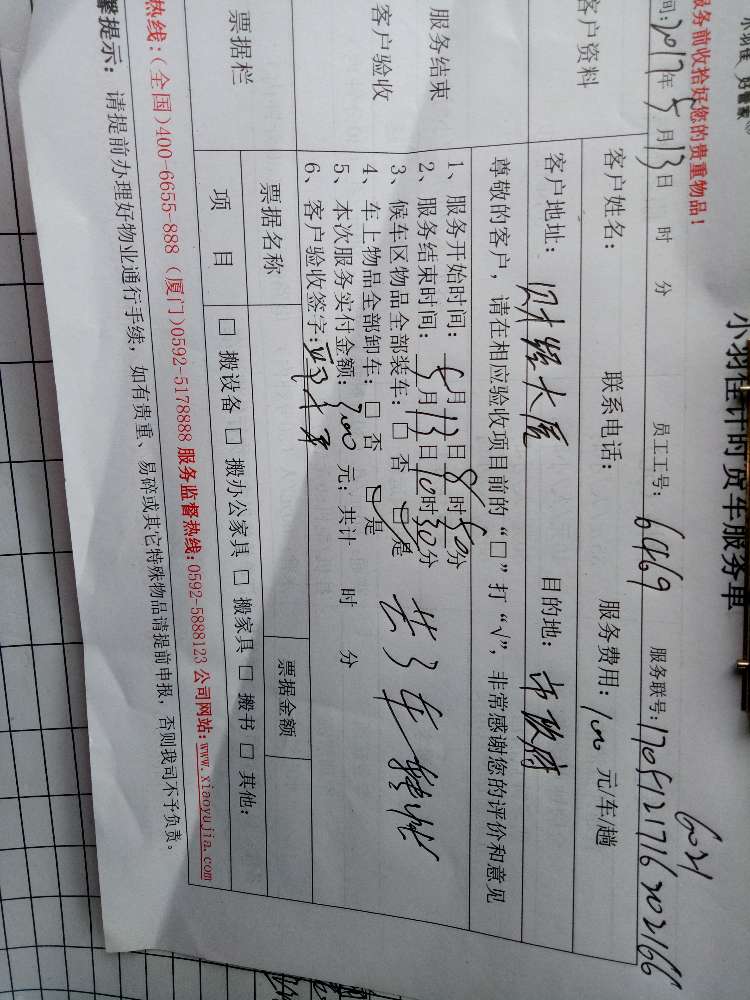 小羽佳 好管家
小羽佳计时货车服务单
服务前收拾好您的贵重物品!
间:2017年5月13日 时 分 员工工号: 6469 服务联号: 1705121716202166
6021
客户资料
客户姓名: 联系电话: 服务费用: 100 元/车/趟
客户地址: 财经大厦 目的地: 市政府
服务结束
客户验收
尊敬的客户,请在相应验收项目前的“□”打“√”,非常感谢您的评价和意见
1、服务开始时间: 5月13日8时50分
2、服务结束时间: 5月13日10时30分
3、候车区物品全部装车:□ 否 ☑ 是
4、车上物品全部卸车:□ 否 ☑ 是
共3车 转账
5、本次服务实付金额: 300 元;共计 时 分
6、客户验收签字:
票据栏
票据名称 票据金额
项 目 □ 搬设备 □ 搬办公家具 □ 搬家具 □ 搬书 □ 其他:
热线:(全国)400-6655-888 (厦门)0592-5178888 服务监督热线:0592-5888123 公司网站:www.xiaoyujia.com
馨提示: 请提前办理好物业通行手续,如有贵重、易碎或其它特殊物品请提前申报,否则我司不予负责。